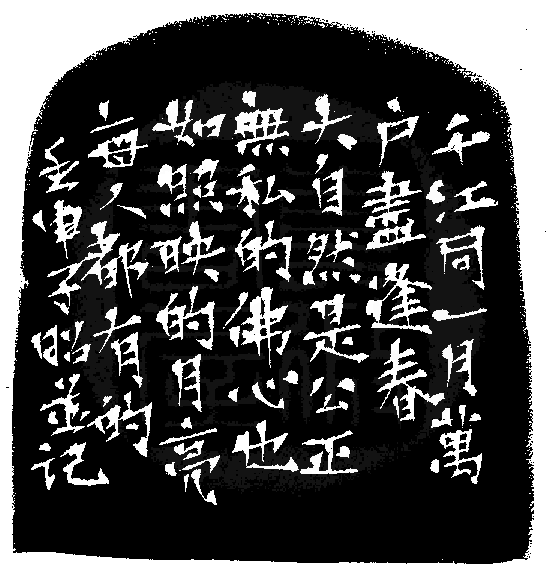 千江同一月萬
户盡逢春
大自然是公正
無私的佛心也
如照映的月亮
每人都有的
子昭並记